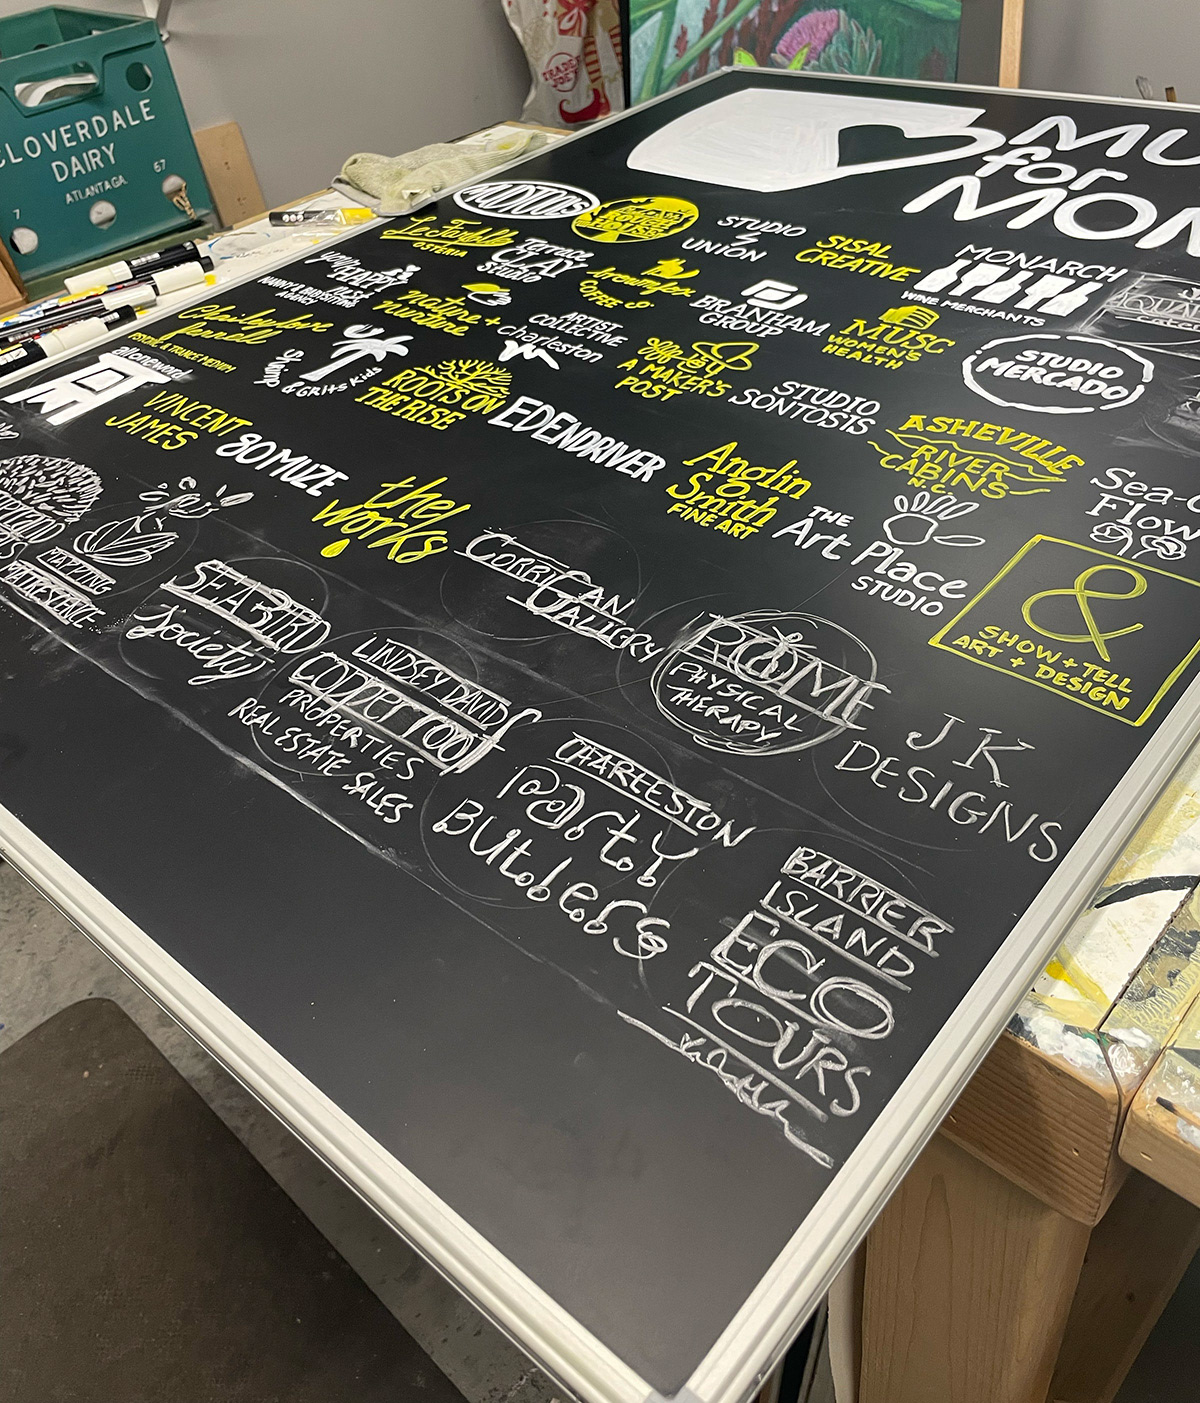 CLOVERDALE
DAIRY
ATLANTA GA.
67
7
TRADER
JOE'S
for
STUDIO
UNION
SISAL
CREATIVE
MONARCH
WINE MERCHANTS
OSTERIA
Terrace
CLAY
STUDIO
COFFEE
BRANHAM
GROUP
MUSC
WOMEN'S
HEALTH
STUDIO
MERCADO
HAPPY
NEST
NANNY & BABYSITTING
AGENCY
nature +
nurture
ARTIST
COLLECTIVE
charleston
A MAKER'S
POST
STUDIO
SONTOSIS
PSYCHIC & TRANCE MEDIUM
& GRITS KIDS
ROOTS ON
THE RISE
EDENDRIVER
ASHEVILLE
RIVER
CABINS
N.C.
VINCENT
JAMES
80MUZE
the
works
Anglin
Smith
FINE ART
THE
Art Place
STUDIO
Flow
&
SHOW + TELL
ART + DESIGN
SEABIRD
Society
CORRIGAN
VALIGRY
LINDSEY DAVIS
COPPER ROOF
PROPERTIES
REAL ESTATE SALES
PHYSICAL
THERAPY
JK
DESIGNS
CHARLESTON
PARTY
BUILDERS
BARRIER
ISLAND
ECO
TOURS